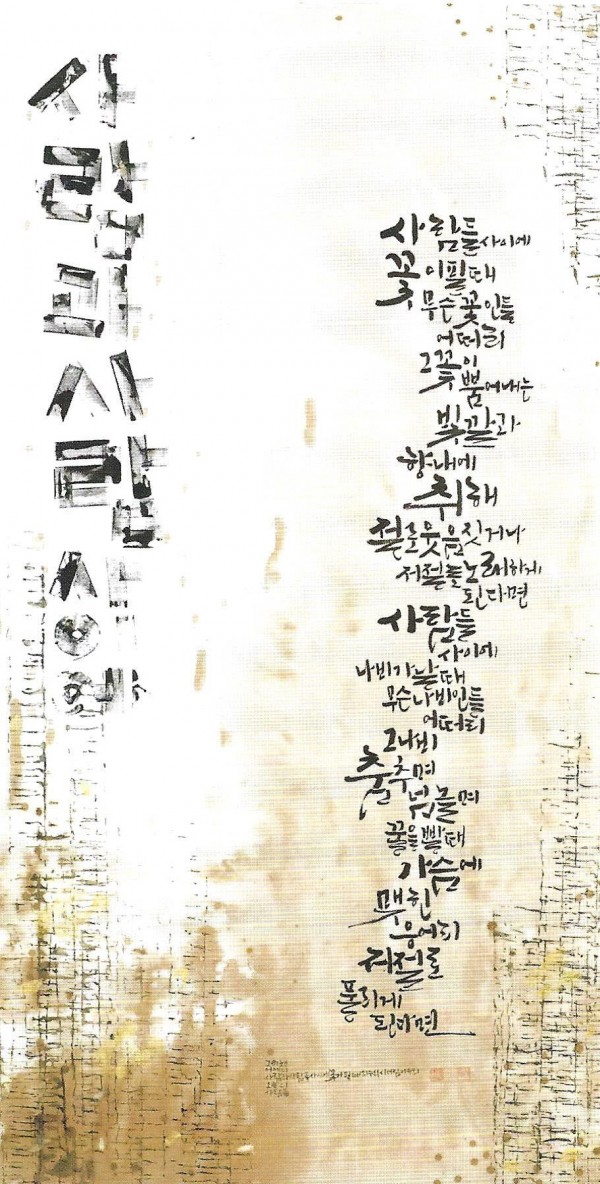 사
람
과
사
람
사람들 사이에
꽃이 필 때
무슨 꽃인들
어떠리
그 꽃이
뿜어내는
빛깔과
향내에
취해
절로 웃음 짓거나
저절로 노래하게
된다면
사람들
사이에
나비가 날 때
무슨 나비인들
어떠리
그 나비
춤추며
넘놀며
꿀을 빨 때
가슴에
맺힌
응어리
저절로
풀리게
된다면